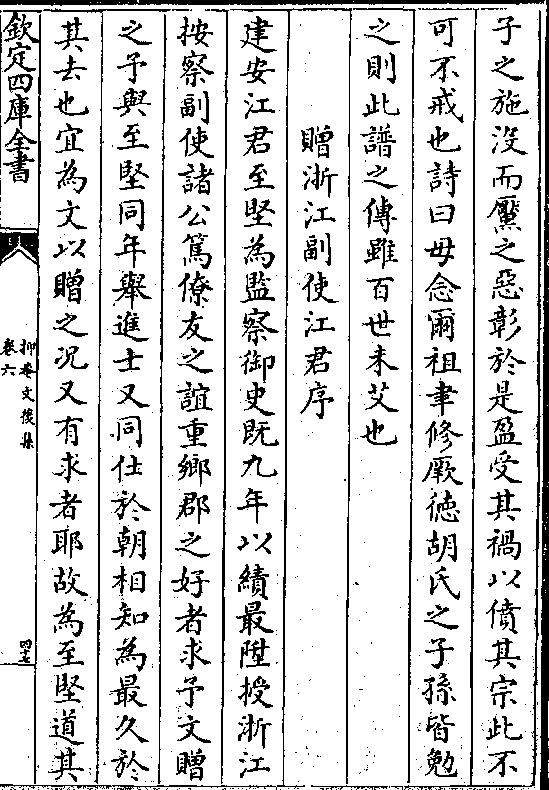 子之施没而黶之惡彰於是盈受其禍以僨其宗此不
可不戒也詩曰毋念爾祖聿修厥徳胡氏之子孫皆勉
之則此譜之傳雖百世未艾也
贈浙江副使江君序
建安江君至堅為監察御史既九年以績最陞授浙江
按察副使諸公篤僚友之誼重鄉郡之好者求予文贈
之予與至堅同年舉進士又同仕於朝相知為最久於
其去也宜為文以贈之况又有求者耶故為至堅道其
欽定四庫全書
抑菴文後集
卷六